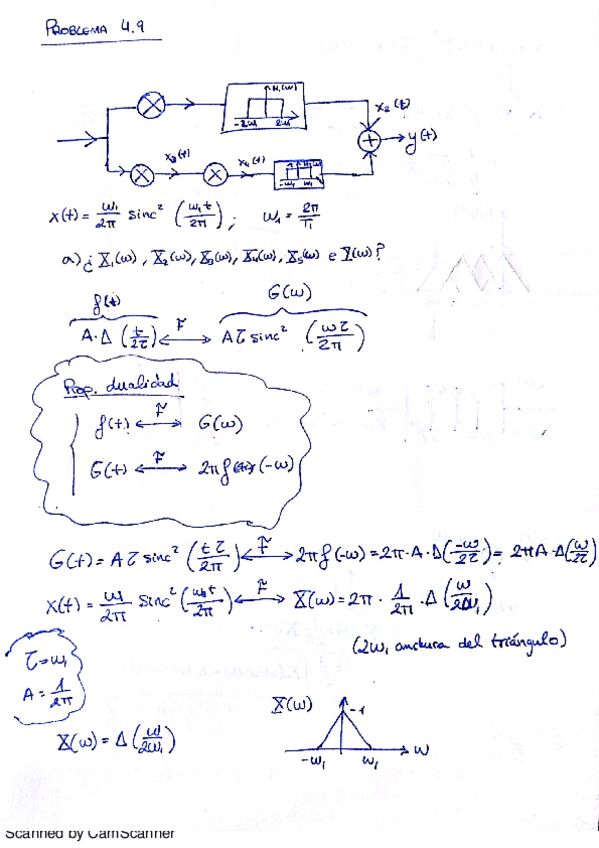 PROBLEMA 4.9
H₁(ω)
-2ω₁ 2ω₁
x₂(t)
y(t)
x₃(t) x₄(t)
-ω₁ ω₁
x(t) = ω₁/2π sinc² (ω₁t/2π); ω₁ = 2π/T₁
a) ¿X₁(ω), X₂(ω), X₃(ω), X₄(ω), X₅(ω) e Y(ω)?
f(t) G(ω)
A·Δ(t/2τ) ⟷ F Aτ sinc² (ωτ/2π)
Prop. dualidad
f(t) ⟷ F G(ω)
G(t) ⟷ F 2πf(-ω)
G(t) = Aτ sinc² (tτ/2π) ⟷ F 2πf(-ω) = 2π·A·Δ(-ω/2τ) = 2πA·Δ(ω/2τ)
x(t) = ω₁/2π sinc² (ω₁t/2π) ⟷ F X(ω) = 2π · 1/2π · Δ(ω/2ω₁)
(2ω₁ anchura del triángulo)
τ = ω₁
A = 1/2π
X(ω) = Δ(ω/2ω₁)
X(ω) 1
-ω₁ ω₁ ω
Scanned by CamScanner